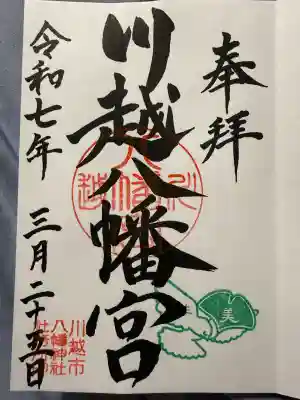 奉拝
川越八幡宮
令和七年 三月二十五日
川越市
八幡神社
美